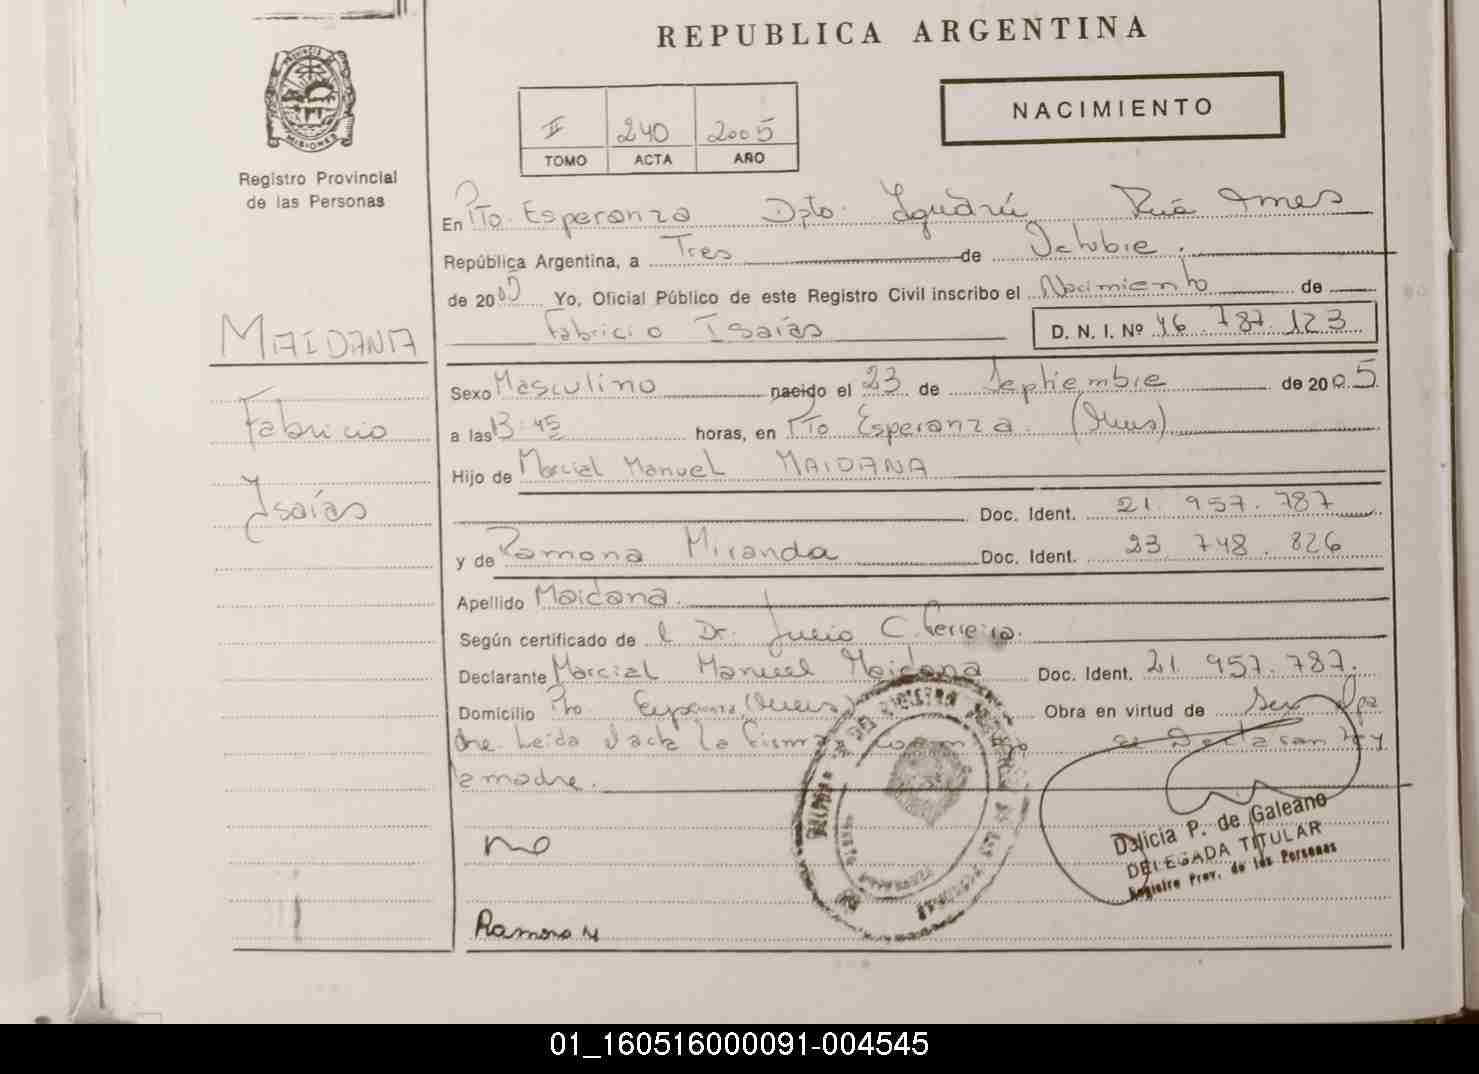 REPUBLICA ARGENTINA
NACIMIENTO
II 240 2005
TOMO ACTA AÑO
PROVINCIA DE
MISIONES
Registro Provincial
de las Personas
En Pto. Esperanza Dpto. Iguazú
República Argentina, a Tres de Octubre.
de 2005 Yo, Oficial Público de este Registro Civil inscribo el Nacimiento de
Fabricio Isaías D. N. I. Nº 46.787.123
MAIDANA
Fabricio
Isaías
Sexo Masculino nacido el 23 de Septiembre de 2005.
a las 13:45 horas, en Pto Esperanza (Mnes)
Hijo de Marcial Manuel MAIDANA
Doc. Ident. 21.957.787
y de Ramona Miranda Doc. Ident. 23.748.826
Apellido Maidana.
Según certificado de l Dr. Julio C. Ferreira.
Declarante Marcial Manuel Maidana Doc. Ident. 21.957.787.
Domicilio Pto. Esperanza (Mnes) Obra en virtud de ser el pa
dre. Leida el acta la firma el Declarante y
la madre.
Delicia P. de Galeano
DELEGADA TITULAR
Registro Prov. de las Personas
Ramona M
01_160516000091-004545